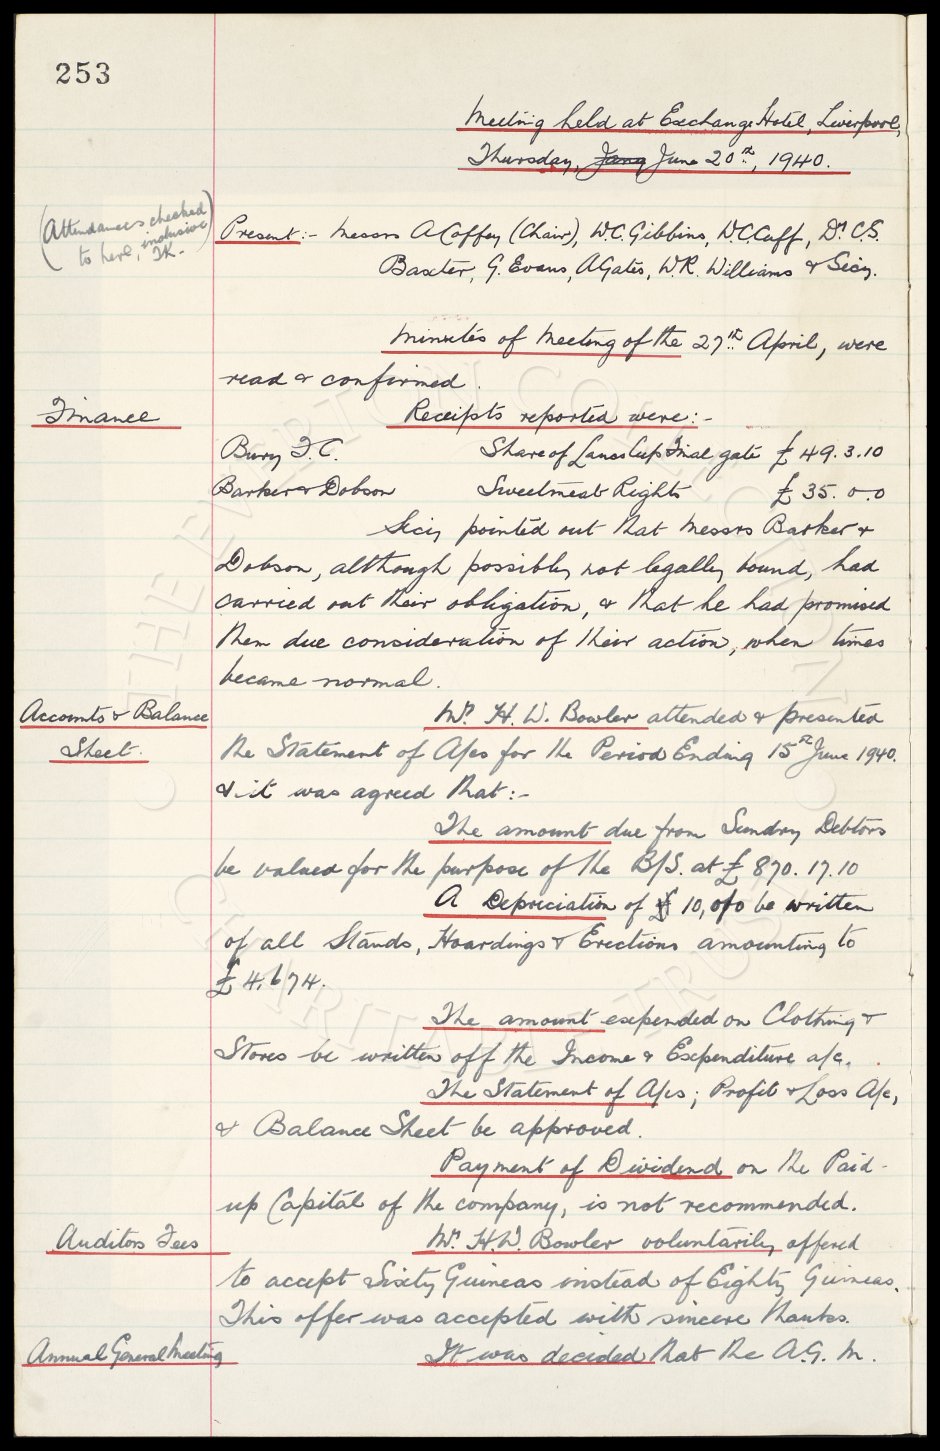 253
Meeting held at Exchange Hotel, Liverpool,
Thursday, June 20th, 1940.
(Attendances checked
to here, inclusive
TK-)
Present:- Messrs A Coffey (Chair), W.C. Gibbins, W.C. Cuff, Dr. C.S.
Baxter, G. Evans, A Gates, W.R. Williams & Secy.
Minutes of Meeting of the 27th April, were
read & confirmed.
Finance
Receipts reported were:-
Bury F.C. Share of Lancs Cup Final gate £49.3.10
Barker & Dobson Sweetmeat Rights £35.0.0
Secy pointed out that Messrs Barker &
Dobson, although possibly not legally bound, had
carried out their obligation, & that he had promised
them due consideration of their action, when times
became normal.
Accounts & Balance
Sheet.
Mr. H. W. Bowler attended & presented
the Statement of A/cs for the Period Ending 15th June 1940.
& it was agreed that:-
The amount due from Sundry Debtors
be valued for the purpose of the B/S. at £870.17.10
A Depreciation of 10, o/o be written
of all Stands, Hoardings & Erections amounting to
£4,674.
The amount expended on Clothing &
Stores be written off the Income & Expenditure a/c.
The Statement of A/cs; Profit & Loss A/c,
& Balance Sheet be approved.
Payment of Dividend on the Paid-
up Capital of the company, is not recommended.
Auditors Fees
Mr. H.W. Bowler voluntarily offered
to accept Sixty Guineas instead of Eighty Guineas.
This offer was accepted with sincere thanks.
Annual General Meeting
It was decided that the A.G.M.
THE EVERTON COLLECTION
CHARITABLE TRUST